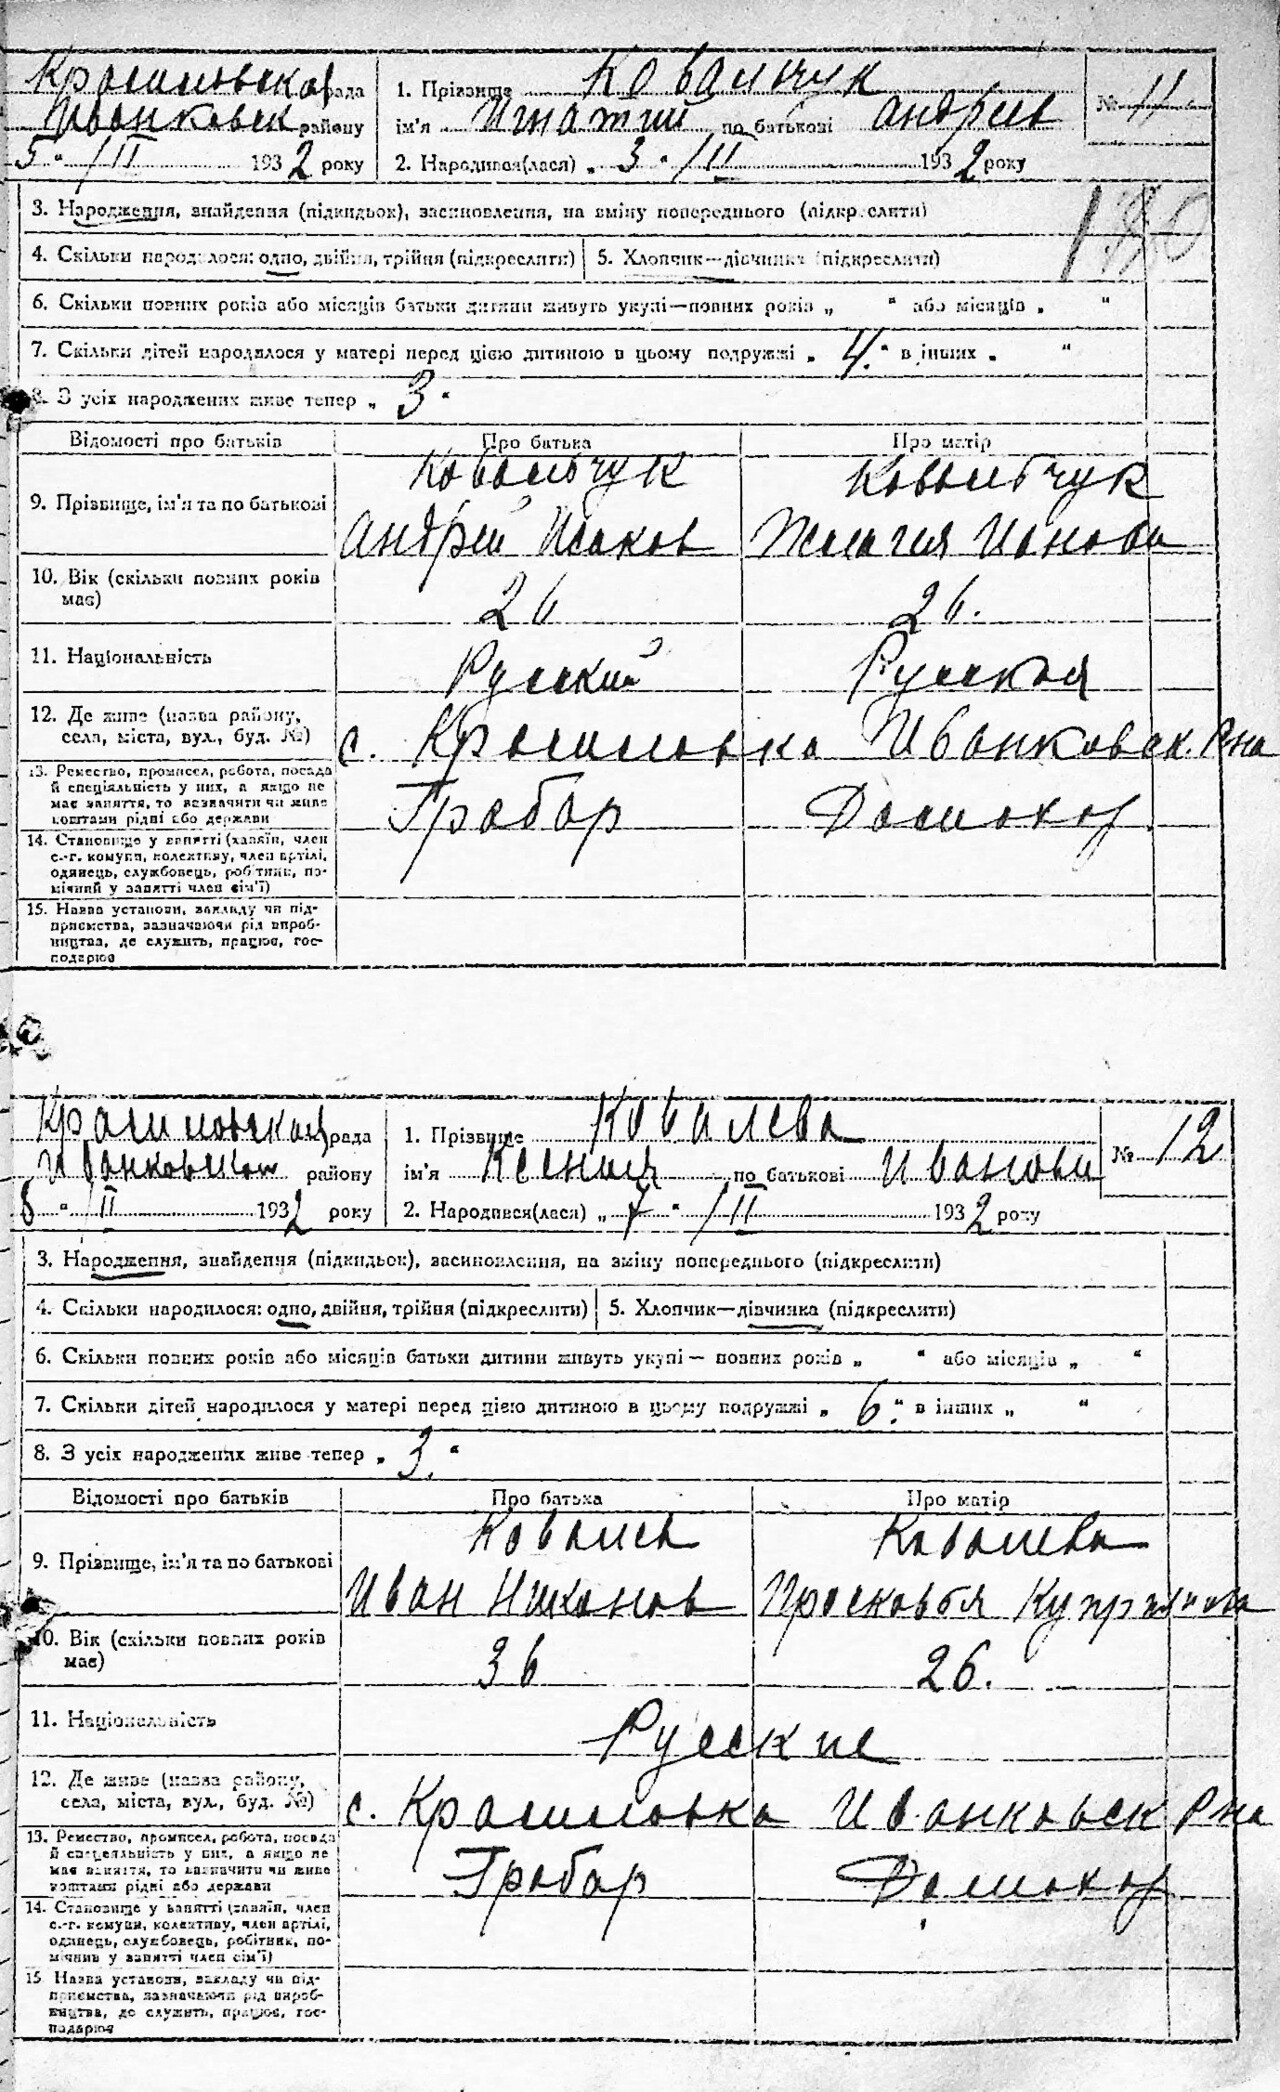 Красиловская рада
Иванковск району
5 " / II 1932 року
1. Прізвище Ковальчук
ім'я Игнатий по батькові Андреев
2. Народився(лася) " 3 " / II 1932 року
№ 11
3. Народження, знайдення (підкидьок), засиновлення, на зміну попереднього (підкреслити)
4. Скільки народилося: одно, двійня, трійня (підкреслити) 5. Хлопчик—дівчинка (підкреслити)
6. Скільки повних років або місяців батьки дитини живуть укупі—повних років „ " або місяців „ "
7. Скільки дітей народилося у матері перед цією дитиною в цьому подружжі „ 4 " в інших „ "
8. З усіх народжених живе тепер „ 3 "
Відомості про батьків Про батька Про матір
9. Прізвище, ім'я та по батькові
Ковальчук
Андрей Исаков
Ковальчук
Ионова
10. Вік (скільки повних років має) 26 26.
11. Національність Русский Русская
12. Де живе (назва району,
села, міста, вул., буд. №) с. Красиловка Иванковск. Рна
13. Ремество, промисел, робота, посада
й спеціяльність у них, а якщо не
має заняття, то зазначити чи живе
коштами рідні або держави
Грабар Домохоз
14. Становище у занятті (хазяїн, член
с.-г. комуни, колективу, член артілі,
одинець, службовець, робітник, по-
мічний у занятті член сім'ї)
15. Назва установи, закладу чи під-
приємства, зазначаючи рід вироб-
ництва, де служить, працює, гос-
подарює
Красиловская рада
Иванковском району
8 " / II 1932 року
1. Прізвище Ковалева
ім'я Ксения по батькові Иванови
2. Народився(лася) „ 7 " / II 1932 року
№ 12
3. Народження, знайдення (підкидьок), засиновлення, на зміну попереднього (підкреслити)
4. Скільки народилося: одно, двійня, трійня (підкреслити) 5. Хлопчик—дівчинка (підкреслити)
6. Скільки повних років або місяців батьки дитини живуть укупі — повних років „ " або місяців „ "
7. Скільки дітей народилося у матері перед цією дитиною в цьому подружжі „ 6 " в інших „ "
8. З усіх народжених живе тепер „ 3. "
Відомості про батьків Про батька Про матір
9. Прізвище, ім'я та по батькові
Ковалев
Иван Никонов
Ковалева
Просковья Куприянова
10. Вік (скільки повних років має) 36 26.
11. Національність Русские
12. Де живе (назва району,
села, міста, вул., буд. №) с. Красиловка Иванковск Рна
13. Ремество, промисел, робота, посада
й спеціяльність у них, а якщо не
має заняття, то зазначити чи живе
коштами рідні або держави
Грабар Домохоз
14. Становище у занятті (хазяїн, член
с.-г. комуни, колективу, член артілі,
одинець, службовець, робітник, по-
мічний у занятті член сім'ї)
15 Назва установи, закладу чи під-
приємства, зазначаючи рід вироб-
ництва, де служить, працює, гос-
подарює